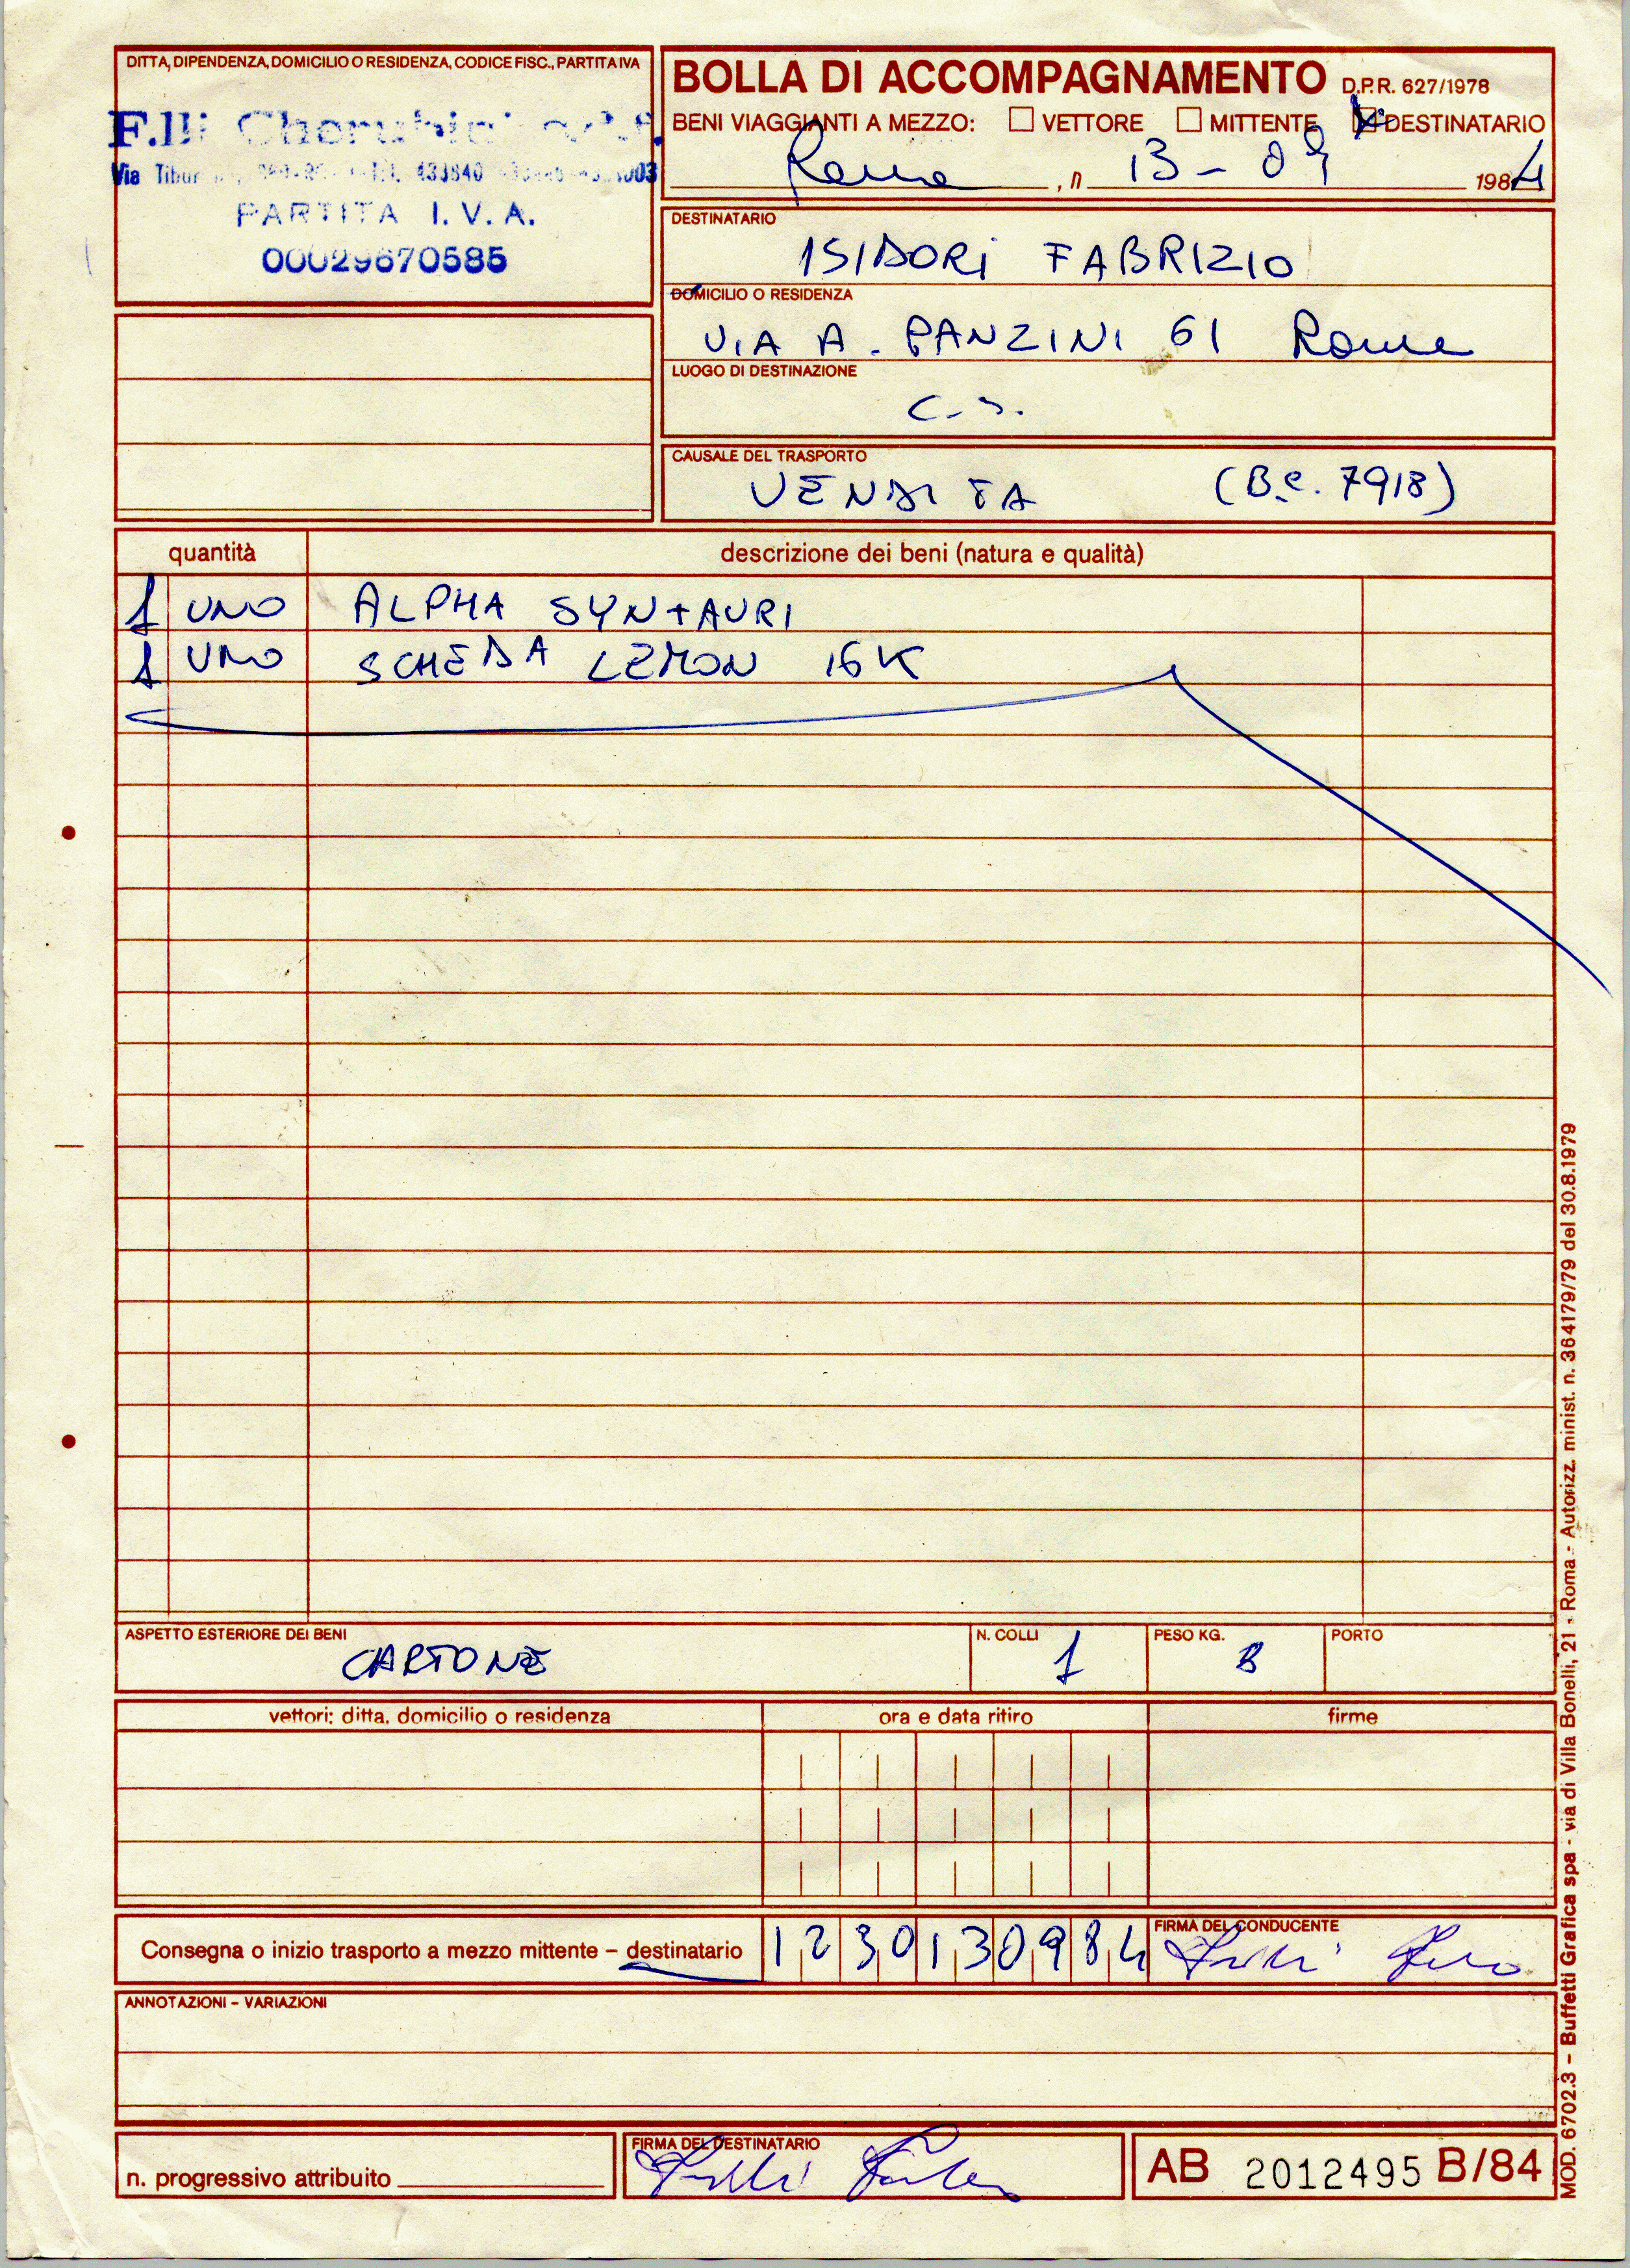 DITTA, DIPENDENZA, DOMICILIO O RESIDENZA, CODICE FISC., PARTITA IVA
F.lli Cherubini
Via 433840
PARTITA I.V.A.
00029670585
BOLLA DI ACCOMPAGNAMENTO D.P.R. 627/1978
BENI VIAGGIANTI A MEZZO: VETTORE MITTENTE DESTINATARIO
Roma, n 13-09 1984
DESTINATARIO
ISIDORI FABRIZIO
DOMICILIO O RESIDENZA
VIA A. PANZINI 61 Roma
LUOGO DI DESTINAZIONE
C.S.
CAUSALE DEL TRASPORTO
VENDITA (B.C. 7918)
quantità descrizione dei beni (natura e qualità)
1 UNO ALPHA SYNTAURI
1 UNO SCHEDA LEMON 16K
ASPETTO ESTERIORE DEI BENI N. COLLI PESO KG. PORTO
CARTONE 1 8
vettori: ditta, domicilio o residenza ora e data ritiro firme
Consegna o inizio trasporto a mezzo mittente – destinatario 1230130984 FIRMA DEL CONDUCENTE
ANNOTAZIONI – VARIAZIONI
n. progressivo attribuito
FIRMA DEL DESTINATARIO
AB 2012495 B/84
MOD. 6702.3 – Buffetti Grafica spa - via di Villa Bonelli, 21 - Roma - Autorizz. minist. n. 364179/79 del 30.8.1979